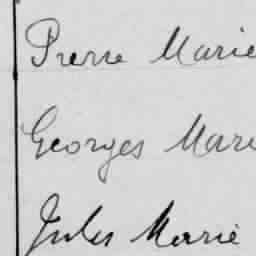 Pierre Marie
Georges Mari
Jules Marie